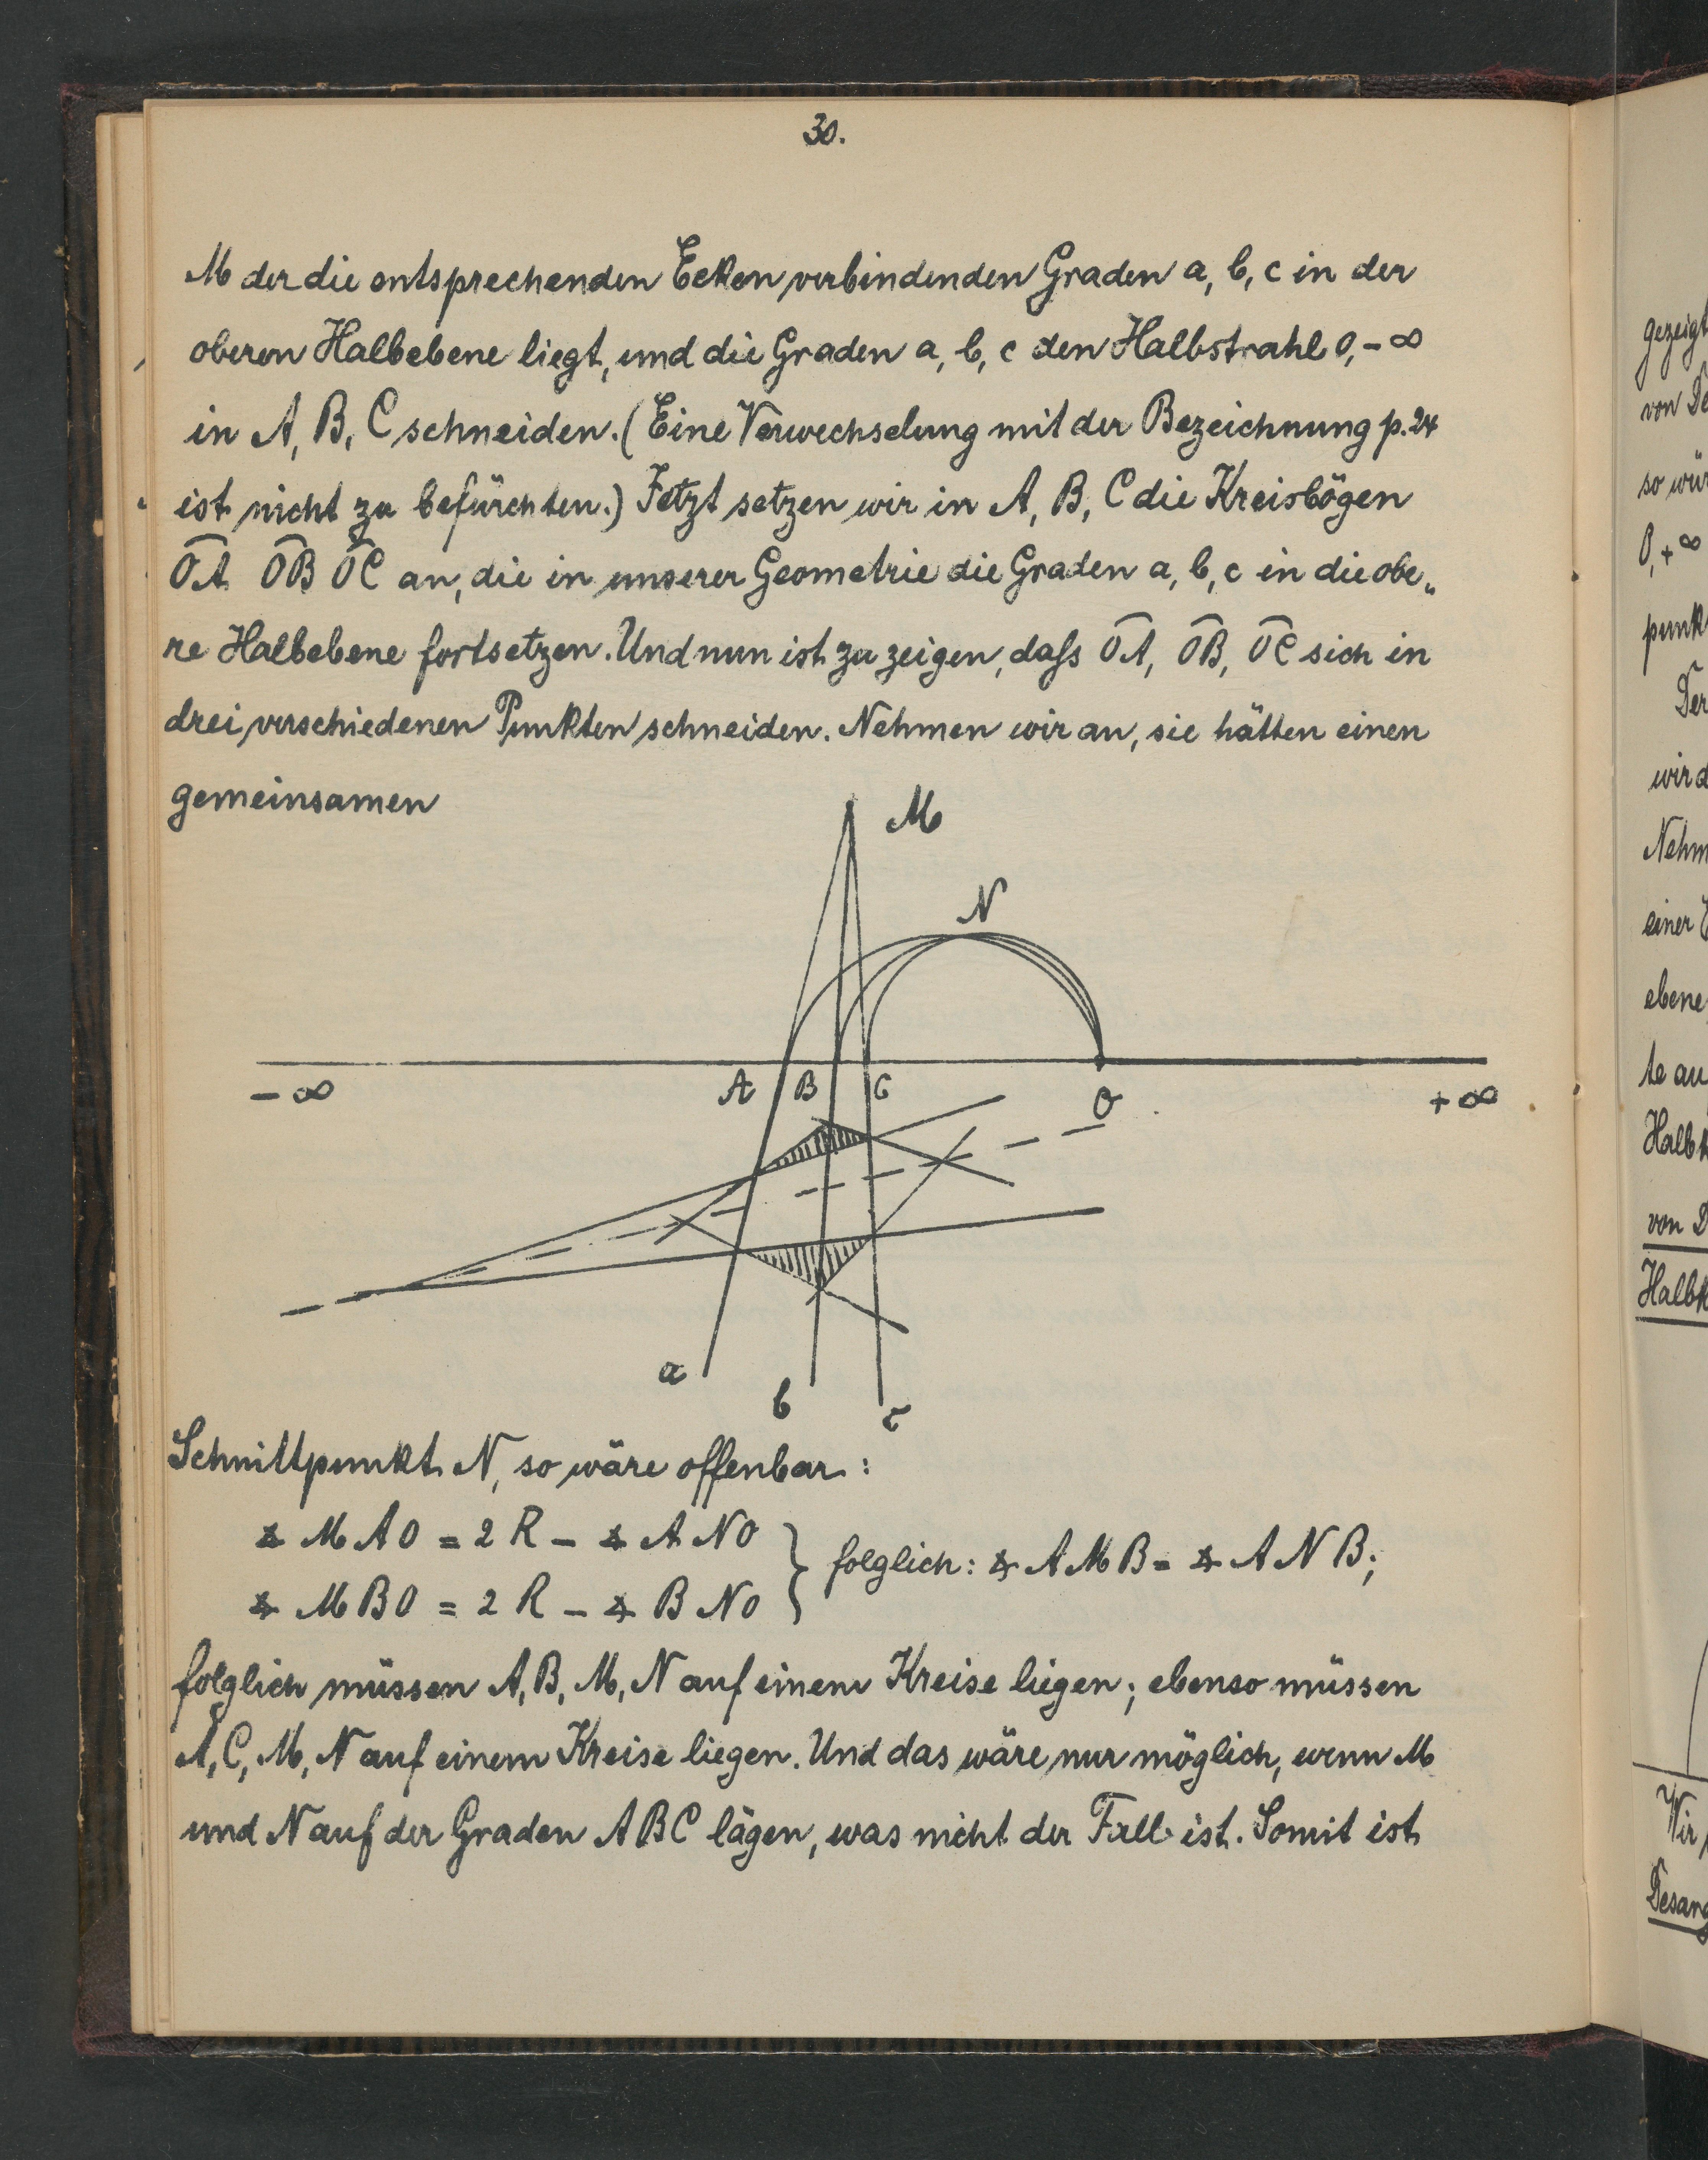 30.
M der die entsprechenden Ecken verbindenden Graden a, b, c in der
oberen Halbebene liegt, und die Graden a, b, c den Halbstrahl 0, - ∞
in A, B, C schneiden. (Eine Verwechselung mit der Bezeichnung p. 24
ist nicht zu befürchten.) Jetzt setzen wir in A, B, C die Kreisbögen
O͡A O͡B O͡C an, die in unserer Geometrie die Graden a, b, c in die obe„
re Halbebene fortsetzen. Und nun ist zu zeigen, daſs O͡A, O͡B, O͡C sich in
drei verschiedenen Punkten schneiden. Nehmen wir an, sie hätten einen
gemeinsamen
M
N
- ∞ A B C O + ∞
a b c
Schnittpunkt N, so wäre offenbar:
∡ M A O = 2 R - ∡ A N O
∡ M B O = 2 R - ∡ B N O } folglich: ∡ A M B = ∡ A N B;
folglich müssen A, B, M, N auf einem Kreise liegen; ebenso müssen
A, C, M, N auf einem Kreise liegen. Und das wäre nur möglich, wenn M
und N auf der Graden A B C lägen, was nicht der Fall ist. Somit ist
gezeigt
so
0, + ∞
punk
wird
Nehm
einer
ebene
te au
Halb
von
Wir
Desarg